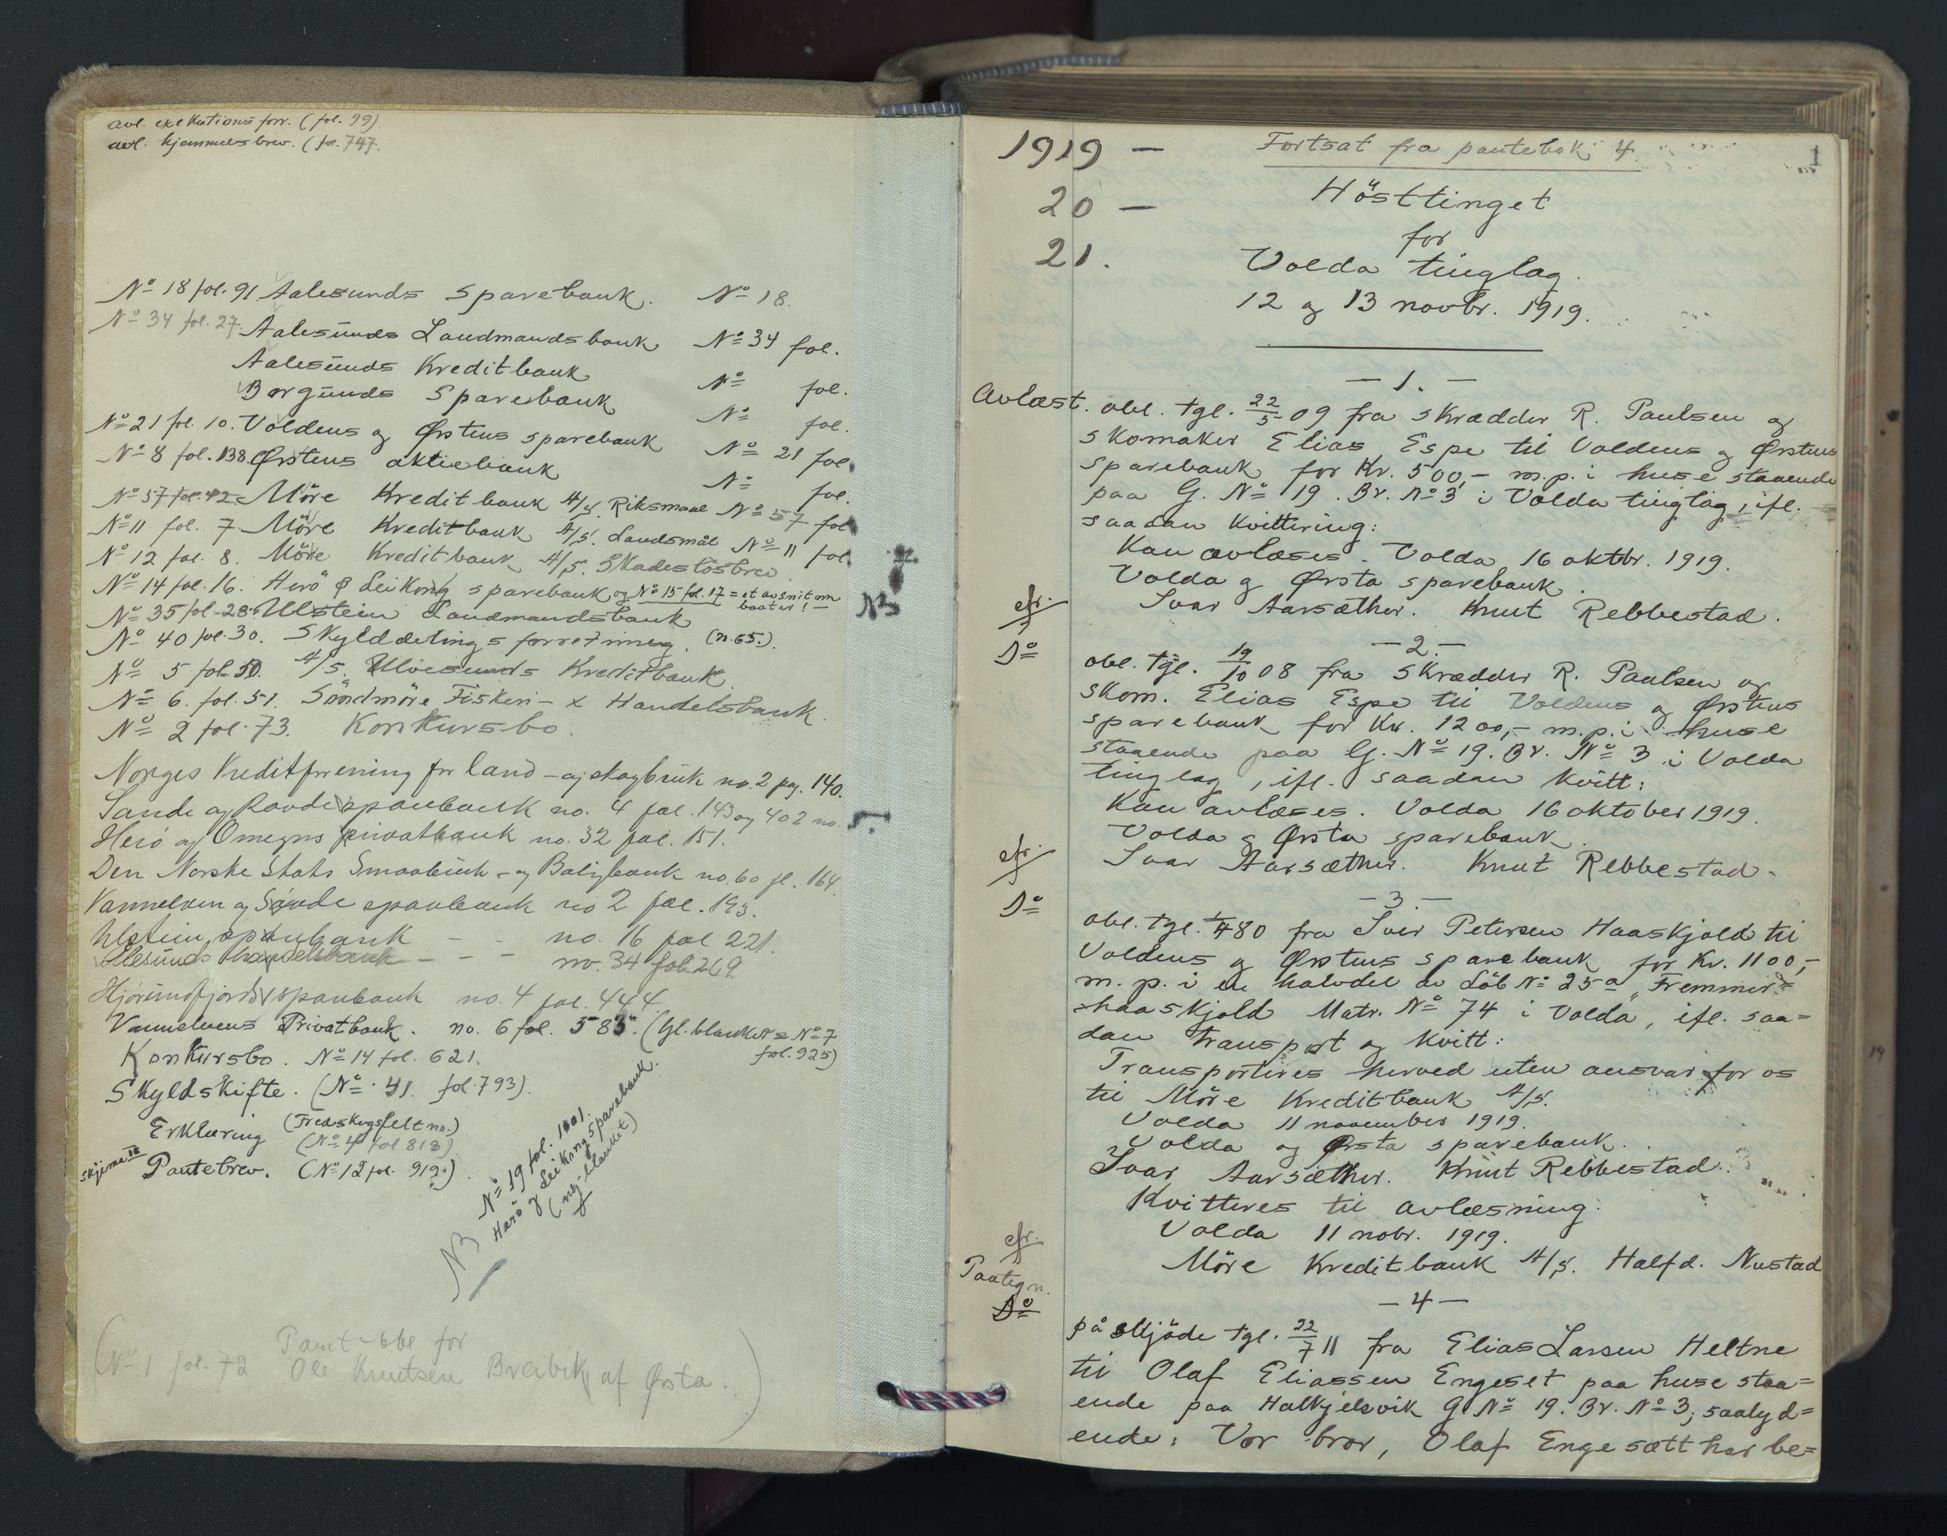 avl. exekutions forr. (fol. 99)
avl. hjemmelsbrev. (fol. 747.
No 18 fol. 91 Aalesunds Sparebank. No 18.
No 34 fol. 27. Aalesunds Landmandsbank No 34 fol.
Aalesunds Kreditbank No fol.
Borgunds Sparebank No fol.
No 21 fol. 10. Voldens og Ørstens sparebank No 21 fol.
No 8 fol. 138. Ørstens aktiebank No fol.
No 57 fol. 42 Möre Kreditbank A/S Riksmaal No 57 fol
No 11 fol. 7 Möre Kreditbank A/S. Landsmål No 11 fol
No 12 fol. 8. Möre Kreditbank A/S. Skadeslösbrev.
No 14 fol. 16. Herö & Leikong sparebank og No 15 fol. 17 = et avsnit om baater! - NB
No 35 fol. 28. Ulstein Landmandsbank
No 40 fol. 30. Skylddelings forretning. (n. 65.)
No 5 fol. 50. A/S. Ulvesunds Kreditbank.
No 6. fol. 51. Söndmöre Fiskeri- & Handelsbank.
No 2 fol. 73. Konkursbo.
Norges Kreditforening for land- og skogbruk no. 2 pg. 140.
Sande og Rovde sparebank no. 4 fol. 143 og 402 no. 5.
Herø og Omegns privatbank no. 32 fol. 151.
Den Norske Stats Smaabruk- og Boligbank no. 60 fl. 164.
Vannelven og Syvde sparebank no 2 fol. 193.
Ulstein sparebank - - no. 16 fol 221.
Ålesunds handelsbank - - - no. 34 fol. 269
Hjørundfjords sparebank no. 4 fol. 444.
Vannelvens Privatbank. no. 6 fol. 583. (Gl. blanket = No 7
fol. 925)
Konkursbo. No 14 fol. 621.
Skyldskifte. (No 41. fol. 793).
Erklæring (Fredskogsfelt no.)
(No 4 fol 818)
skjema Pantebrev. (No 12 fol. 919.)
NB No 19 fol. 1001.
Herö og Leikong sparebank.
(ny blanket)
Pant-obl for
(No 1 fol. 72 Ole Knutsen Breivik af Ørsta.)
1919 - Fortsat fra pantebok 4. 1
20 - Hösttinget
for
21. Volda tinglag.
12 og 13 novbr. 1919.
- 1. -
Avlæst. obl. tgl. 22/5 09 fra skrædder R. Paulsen og
skomaker Elias Espe til Voldens og Ørstens
sparebank for Kr. 500,- m. p. i huse staaende
paa G. No 19. Br. No 3 i Volda tinglag, ifl.
saadan kvittering:
Kan avlæses. Volda 16 oktbr. 1919.
Volda og Ørsta sparebank.
cfr. Ivar Aarsæther. Knut Rebbestad.
- 2. -
Do obl. tgl. 19/10 08 fra skrædder R. Paulsen og
skom. Elias Espe til Voldens og Ørstens
sparebank for Kr. 1200,- m. p. i huse
staaende paa G. No 19. Br. No 3 i Volda
tinglag, ifl. saadan kvitt:
Kan avlæses. Volda 16 oktober 1919.
Volda og Ørsta sparebank.
cfr. Ivar Aarsæther. Knut Rebbestad.
- 3. -
Do obl. tgl. 80 fra Iver Petersen Haaskjold til
Voldens og Ørstens sparebank for Kr. 1100,-
m. p. i en halvdel av Löb No 25a „Fremmer=
haaskjold Matr. No 74 i Volda, ifl. saa=
dan transport og kvitt:
Transporteres herved uten ansvar for os
til Möre Kreditbank A/S.
Volda 11 november 1919.
Volda og Ørsta sparebank.
Ivar Aarsæther. Knut Rebbestad.
Kvitteres til avlæsning.
Volda 11 nobr. 1919.
cfr. Möre Kreditbank A/S. Halfd. Nustad
Paategn. - 4 -
Do på skjöde tgl. 22/7 11 fra Elias Larsen Heltne
til Olaf Eliassen Engeset paa huse staa=
ende paa Halkjelsvik G. No 19. Br. No 3, saalyd=
ende: Vor bror, Olaf Engesætt har be=